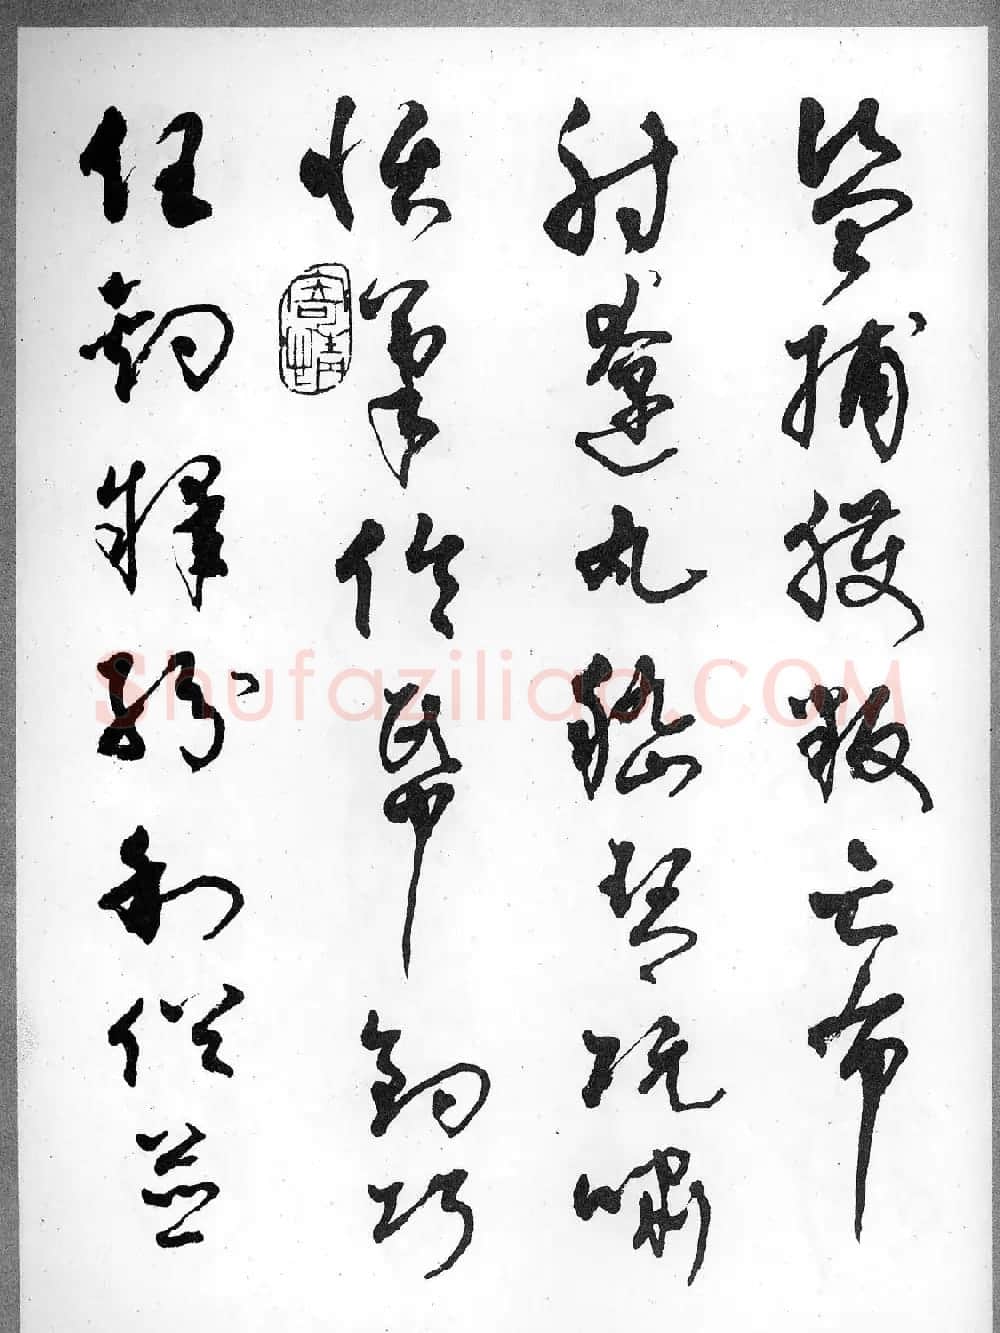 盗捕獲叛亡布
射遼丸嵇琴阮嘯
恬筆倫紙鈞巧
任釣釋紛利俗並
Shufaziliao.COM